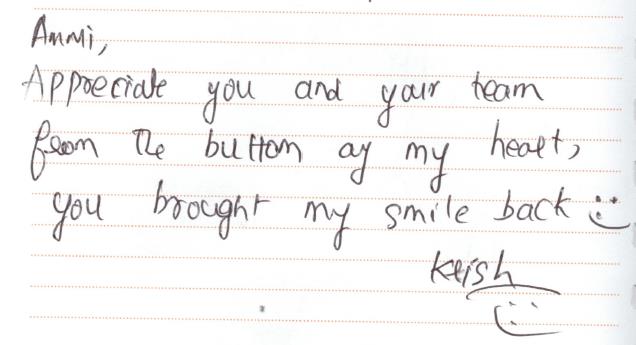 Ammi,
Appreciate you and your team
from the buttom of my heart,
you brought my smile back :)
Krish
:)